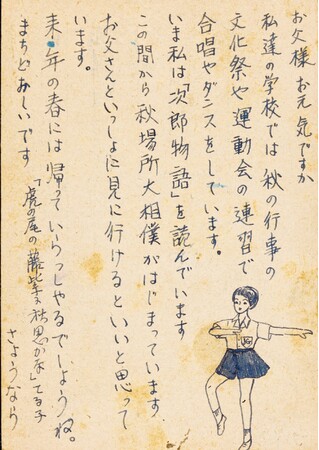 お父様 お元気ですか
私達の学校では 秋の行事の
文化祭や運動会の連習で
合唱やダンスをしています。
いま私は「次郎物語」を読んでいます
この間から秋場所大相僕がはじまっています。
お父さんといっしょに見に行けるといいと思って
います。
来年の春には帰っていらっしゃるでしょうね。
まちどおしいです
「虎の尾の藤紫 秋思かな」てる子
さようなら